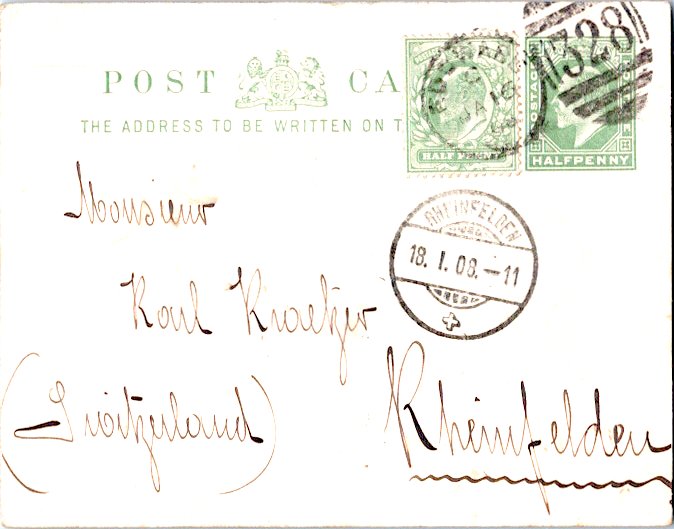 POST CA
THE ADDRESS TO BE WRITTEN ON T
HALFPENNY
HALFPENNY
328
JA 16
Monsieur
RHEINFELDEN
18. I. 08. – 11
Karl Kraetzer
(Switzerland)
Rheinfelden